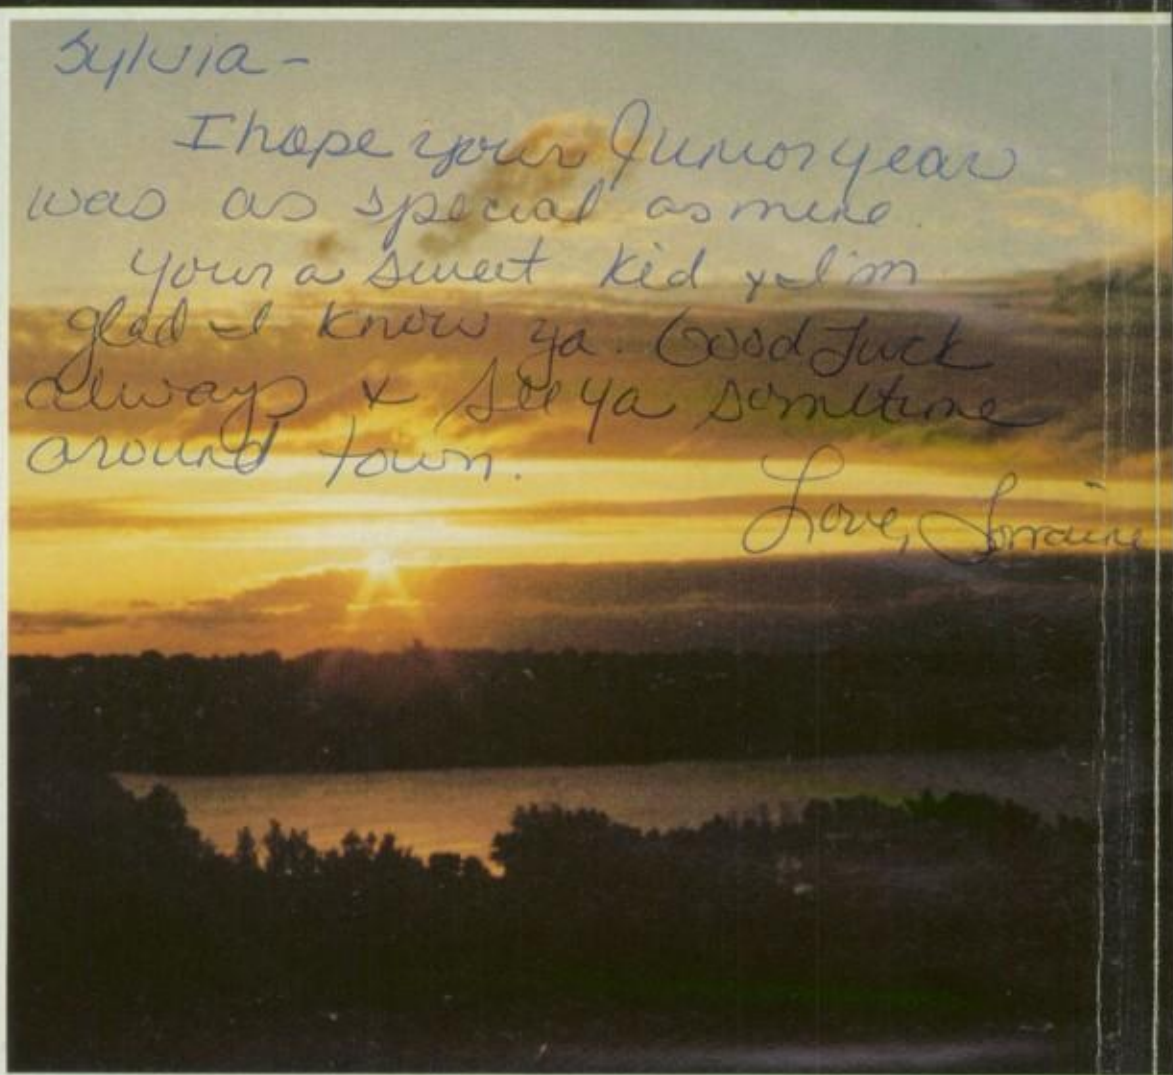 Sylvia -
I hope your Junior year
was as special as mine.
your a sweet kid & I'm
glad I know ya. Good Luck
always & see ya sometime
around town.
Love, Lorraine